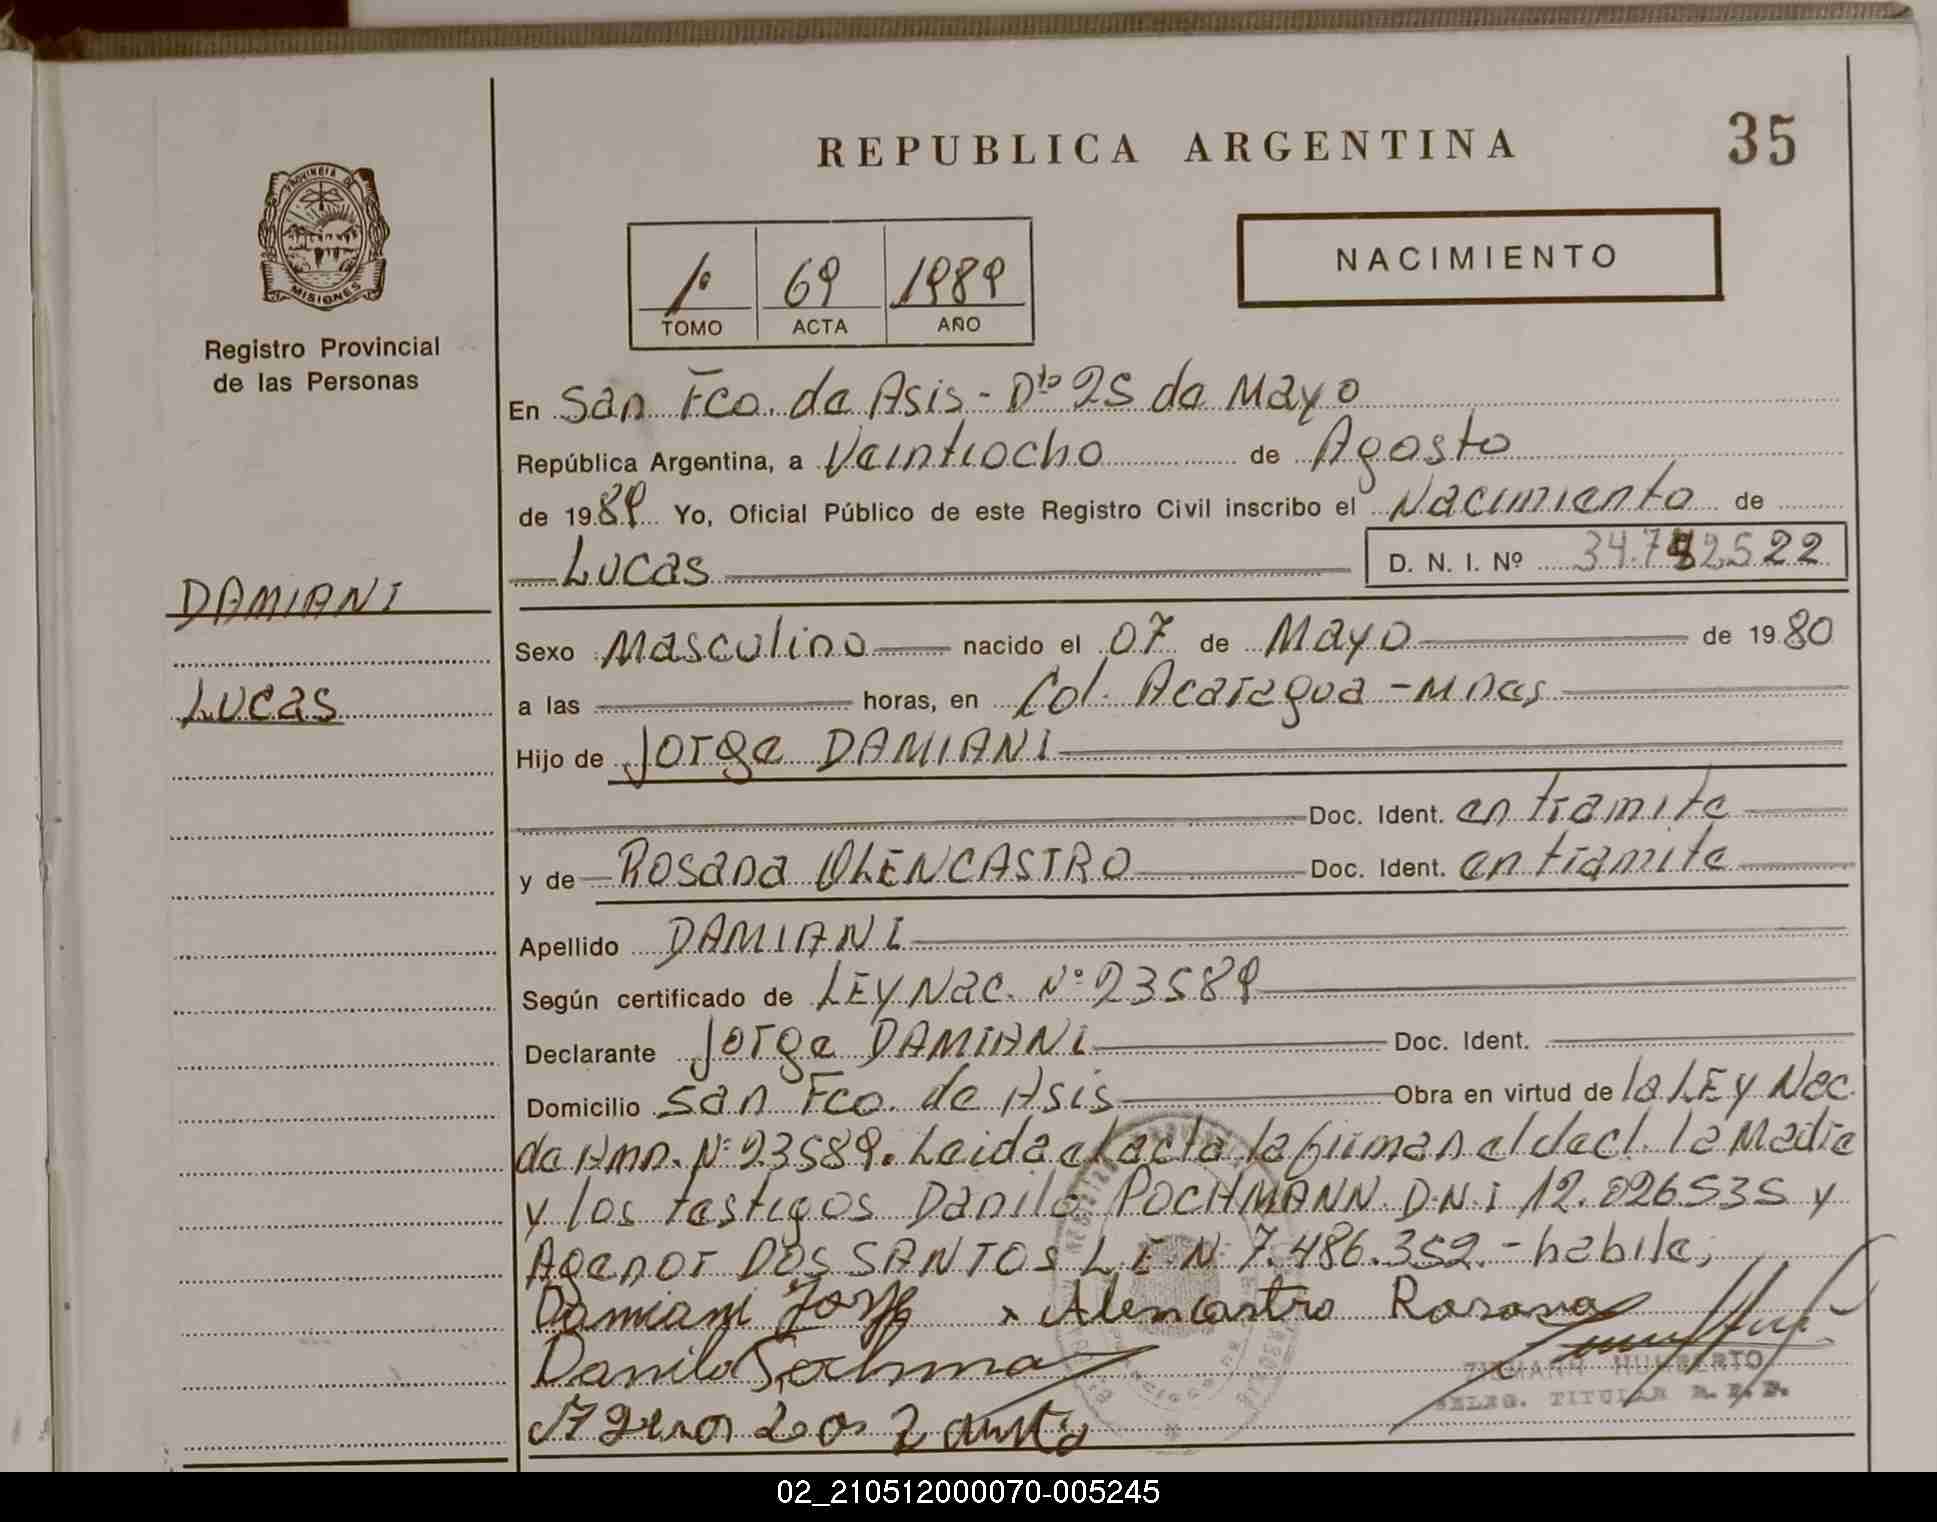 REPUBLICA ARGENTINA
35
PROVINCIA DE
MISIONES
Registro Provincial
de las Personas
1º 69 1989
TOMO ACTA AÑO
NACIMIENTO
En San Fco. de Asis - Dto 25 de Mayo
República Argentina, a Veintiocho de Agosto
de 1989 Yo, Oficial Público de este Registro Civil inscribo el Nacimiento de
Lucas D. N. I. Nº
DAMIANI
Lucas
Sexo Masculino nacido el 07 de Mayo de 1980
a las horas, en Col. Acaragua - Mnes
Hijo de Jorge DAMIANI
Doc. Ident. en tramite
y de Rosana Doc. Ident. en tramite
Apellido DAMIANI
Según certificado de LEY Nac. Nº 23589
Declarante Jorge DAMIANI Doc. Ident.
Domicilio San Fco. de Asis Obra en virtud de la LEY Nac.
de Amn. Nº 23589. Leida el acta la firman el decl. la Madre
y los testigos Danilo POCHMANN D.N.I 12.026.535 y
Agenor DOS SANTOS L.E.N. 7.486.352.- habile;
Damiani Jorge x Alencastro Rosana
Danilo
HUMBERTO
DELEG. TITULAR R.P.P.
02_210512000070-005245